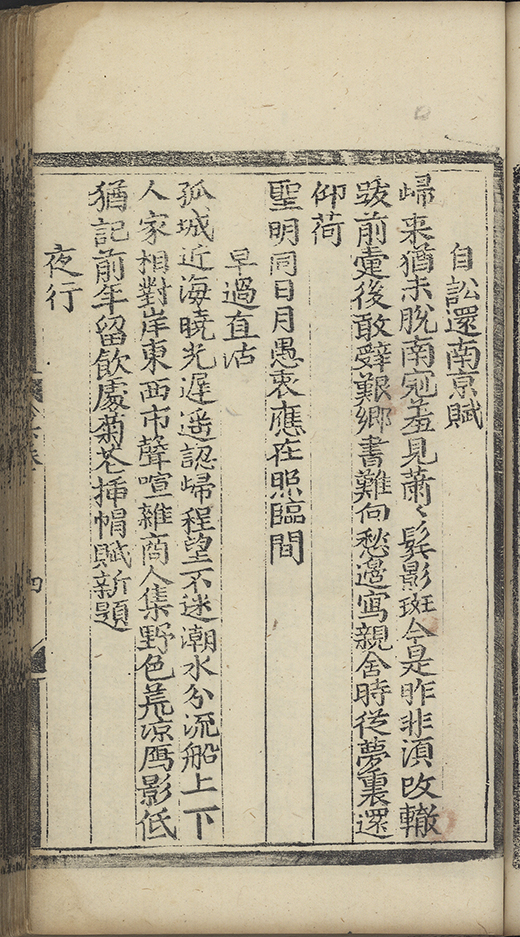 自訟還南京賦
歸来猶未脫南冠羞見蕭〻鬂影斑今是昨非湏改轍
跋前疐後敢辤艱鄉書難向愁邉寫親舍時從夢裏還
仰荷
聖明同日月愚衷應在照臨間
早過直沽
孤城近海曉光遅遥認歸程望不迷潮水分流船上下
人家相對岸東西市聲喧雜商人集野色荒凉鴈影低
猶記前年留飲處菊花挿帽賦新題
夜行
四